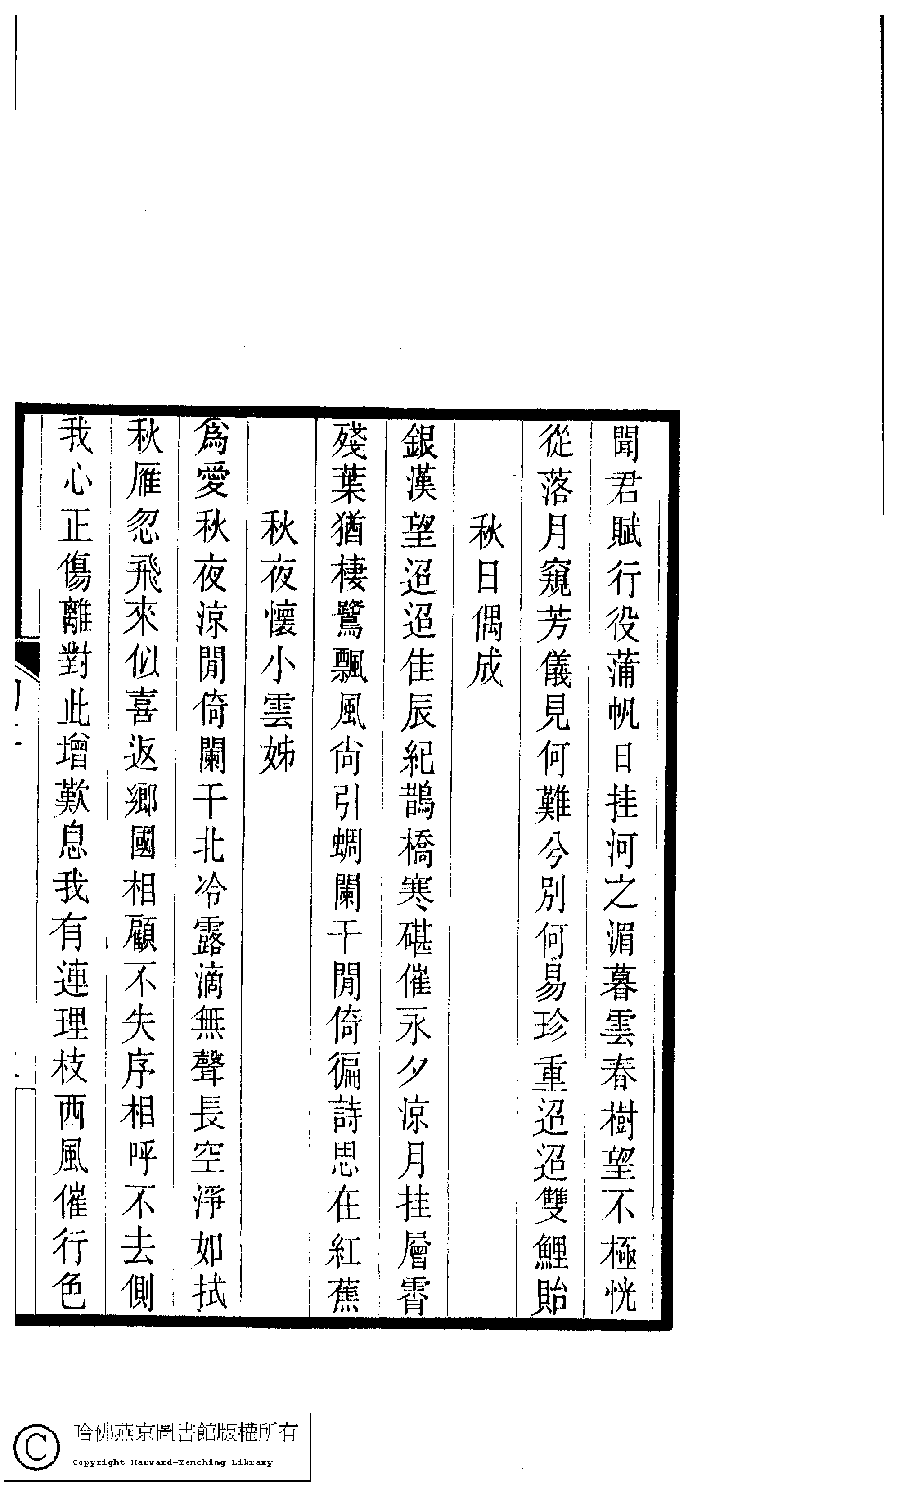 聞君賦行役蒲帆日挂河之湄暮雲春樹望不極恍
從落月窺芳儀見何難兮別何易珍重迢迢雙鯉貽
秋日偶成
銀漢望迢迢佳辰紀鵲橋寒碪催永夕涼月挂層霄
殘葉猶棲鷺飄風尙引蜩闌干閒倚徧詩思在紅蕉
秋夜懷小雲姊
爲愛秋夜涼閒倚闌干北冷露滴無聲長空淨如拭
秋雁忽飛來似喜返鄉國相顧不失序相呼不去側
我心正傷離對此增歎息我有連理枝西風催行色
哈佛燕京圖書館版權所有
Copyright Harvard-Yenching Library